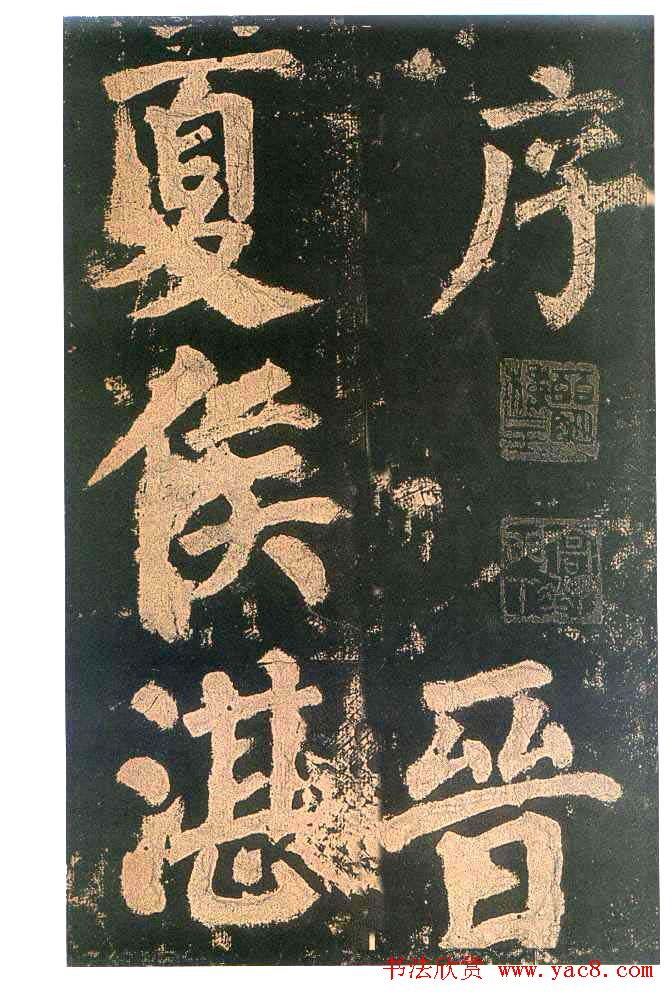 序
晋
夏侯湛
书法欣赏 www.yac8.com